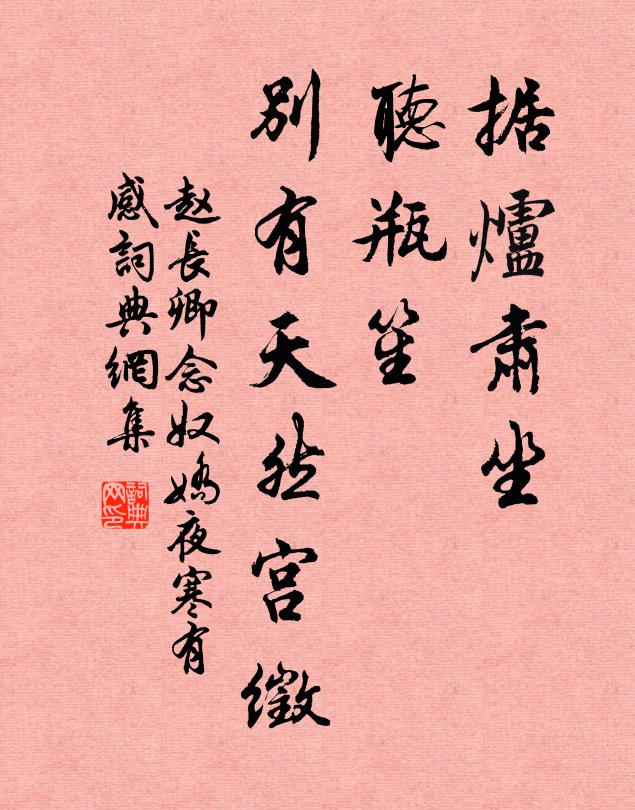 据爐肅坐
聽瓶笙
別有天然宫徵
赵長卿念奴嬌夜寒有
感詞典網集
詞典
网印